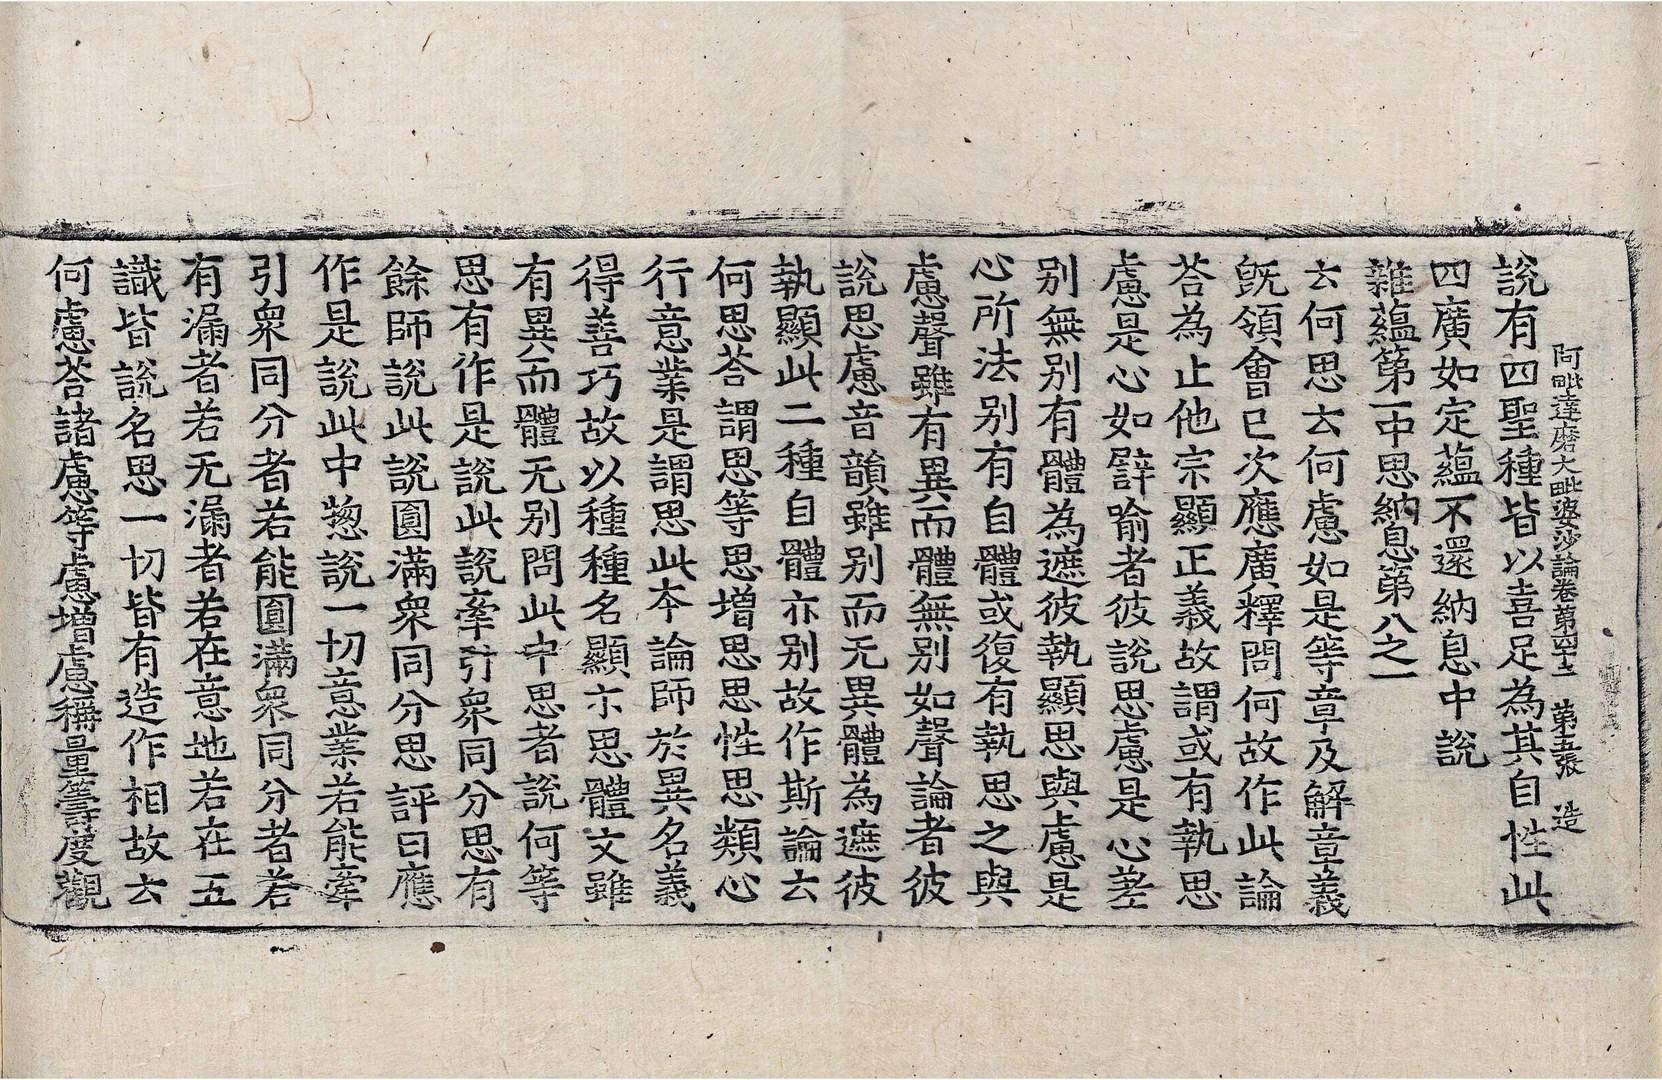 阿毗達磨大毗婆沙論卷第四十二 第五張 造
說有四聖種皆以喜足為其自性此
四廣如定蘊不還納息中說
雜蘊第一中思納息第八之一
云何思云何慮如是等章及解章義
旣領會已次應廣釋問何故作此論
荅為止他宗顯正義故謂或有執思
慮是心如譬喻者彼說思慮是心差
别無别有體為遮彼執顯思與慮是
心所法别有自體或復有執思之與
慮聲雖有異而體無别如聲論者彼
說思慮音韻雖别而无異體為遮彼
執顯此二種自體亦别故作斯論云
何思荅謂思等思增思思性思類心
行意業是謂思此本論師於異名義
得善巧故以種種名顯示思體文雖
有異而體无别問此中思者說何等
思有作是說此說牽引衆同分思有
餘師說此說圓滿衆同分思評曰應
作是說此中惣說一切意業若能牽
引衆同分者若能圓滿衆同分者若
有漏者若无漏者若在意地若在五
識皆說名思一切皆有造作相故云
何慮荅諸慮等慮增慮稱量籌度觀